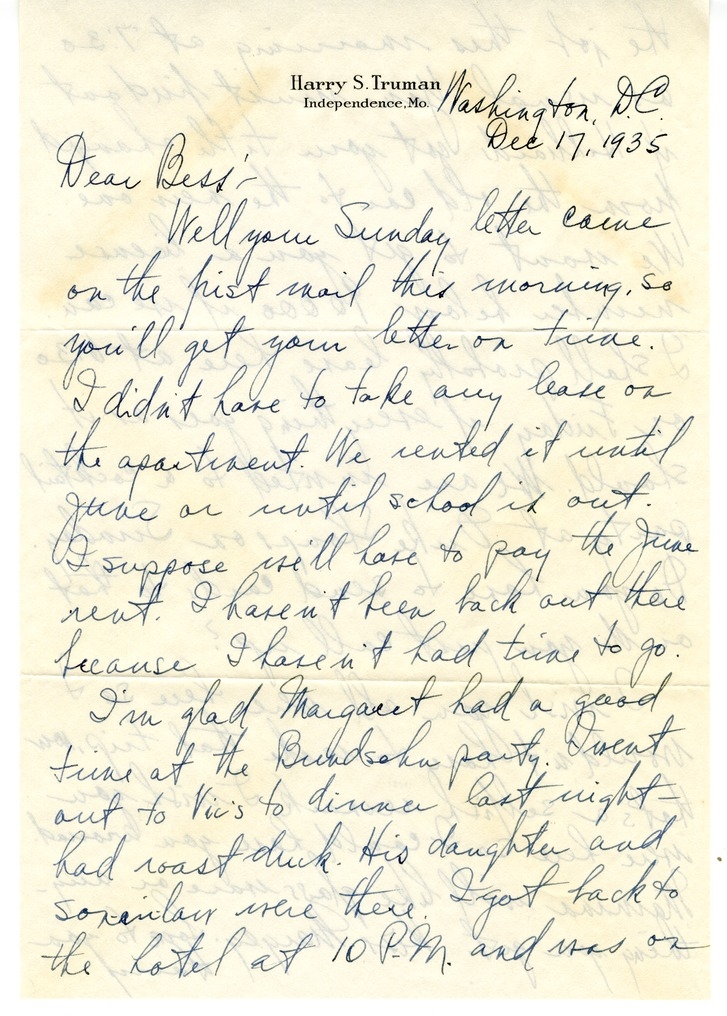 Harry S. Truman
Independence, Mo.
Washington, D.C.
Dec 17, 1935
Dear Bess:-
Well your Sunday letter came
on the first mail this morning, so
you'll get your letter on time.
I didn't have to take any lease on
the apartment. We rented it until
June or until school is out.
I suppose we'll have to pay the June
rent. I haven't been back out there
because I haven't had time to go.
I'm glad Margaret had a good
time at the Bundschu party. I went
out to Vic's to dinner last night-
had roast duck. His daughter and
soninlaw were there. I got back to
the hotel at 10 P.M. and was on